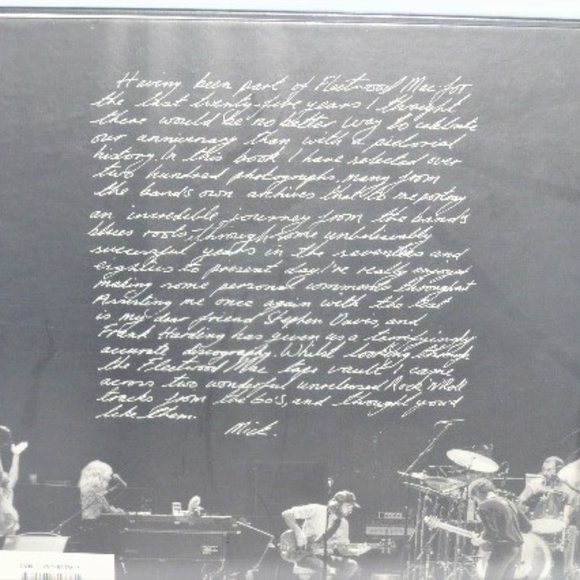 Having been part of Fleetwood Mac for
the last twenty-five years I thought
there would be no better way to celebrate
our anniversary than with a pictorial
history. In this book I have selected over
two hundred photographs, many from
the band's own archives that to me portray
an incredible journey from the band's
blues roots, through some unbelievably
successful years in the seventies and
eighties to present day. I've really enjoyed
making some personal comments throughout
Assisting me once again with the text
is my dear friend Stephen Davis, and
Frank Harding has given us a terrifyingly
accurate discography. Whilst looking through
the Fleetwood Mac tape vault I came
across two wonderful unreleased Rock 'N' Roll
tracks from the 60's, and thought you'd
like them.
Mick.